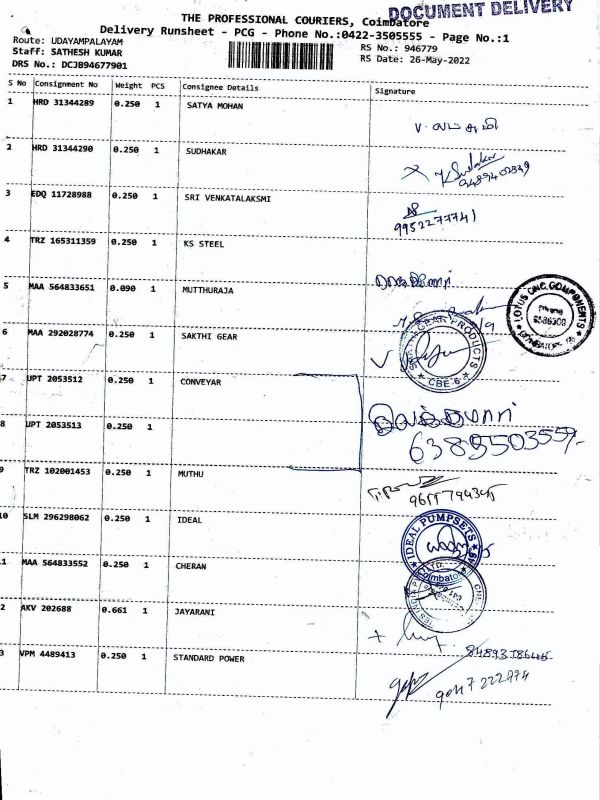 DOCUMENT DELIVERY
THE PROFESSIONAL COURIERS, Coimbatore
Delivery Runsheet - PCG - Phone No.:0422-3505555 - Page No.:1
Route: UDAYAMPALAYAM
RS No.: 946779
Staff: SATHESH KUMAR
RS Date: 26-May-2022
DRS No.: DCJB94677901
S No Consignment No Weight PCS Consignee Details Signature
1 HRD 31344289 0.250 1 SATYA MOHAN
2 HRD 31344290 0.250 1 SUDHAKAR
3 EDQ 11728988 0.250 1 SRI VENKATALAKSMI
9952277741
4 TRZ 165311359 0.250 1 KS STEEL
5 MAA 564833651 0.090 1 MUTTHURAJA
LOTUS CNC COMPONENTS
Phone
6 MAA 292028774 0.250 1 SAKTHI GEAR
GEAR PRODUCTS
CBE-6
7 UPT 2053512 0.250 1 CONVEYAR
8 UPT 2053513 0.250 1
9 TRZ 102001453 0.250 1 MUTHU
10 SLM 296298062 0.250 1 IDEAL
IDEAL PUMPSETS
11 MAA 564833552 0.250 1 CHERAN
Coimbatore
2 AKV 202688 0.661 1 JAYARANI
3 VPM 4489413 0.250 1 STANDARD POWER